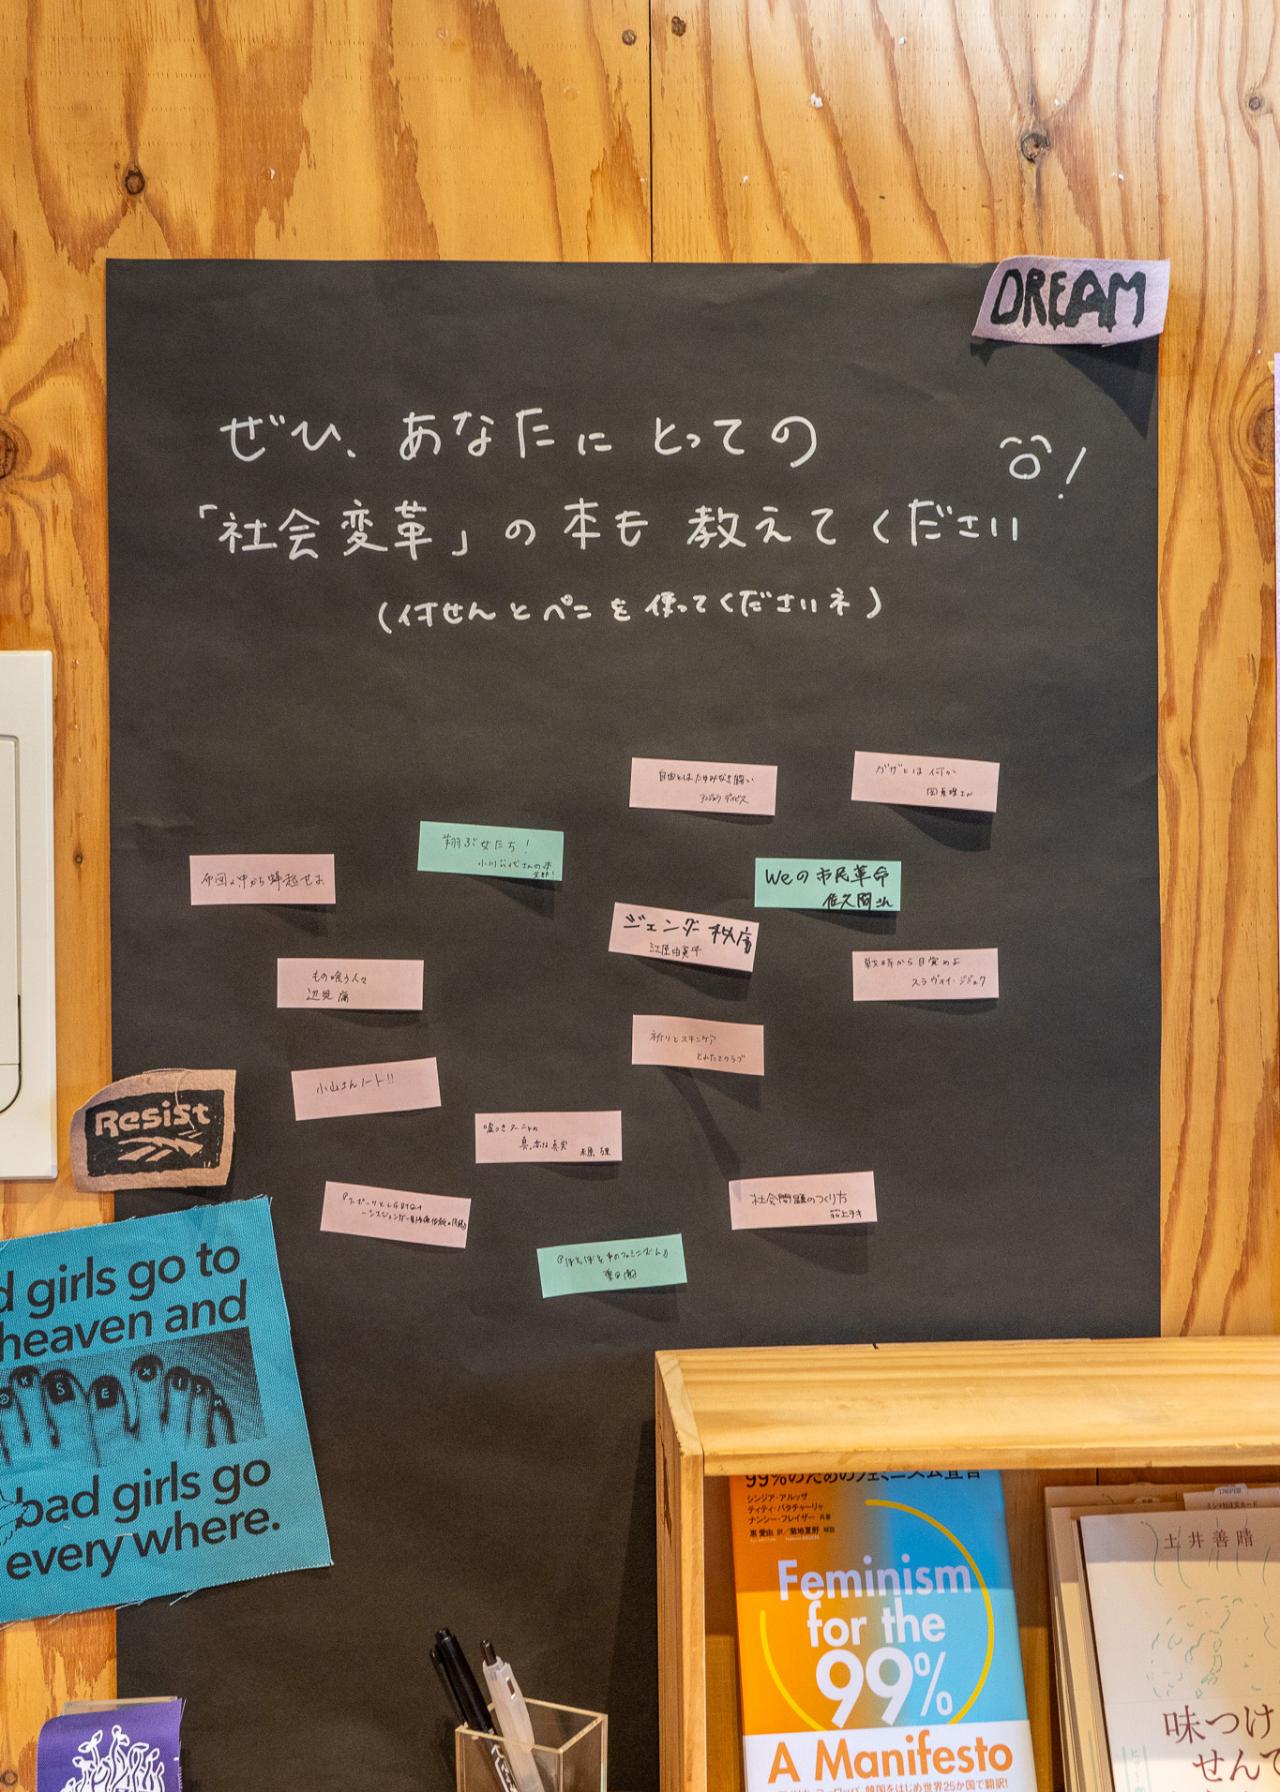 DREAM
ぜひ、あなたにとっての
「社会変革」の本も教えてください
!
(付せんとペンを使ってくださいネ)
自由とはたゆみなき闘い
アンジェラ・デイビス
ガザとは何か
岡真理さん
翔ぶ女たち!
小川公代さんの本
全部!
布団の中から蜂起せよ
Weの市民革命
佐久間さん
ジェンダー秩序
江原由美子
もの喰う人々
辺見庸
戦時から目覚めよ
スラヴォイ・ジジェク
祈りとスキンケア
とれたてクラブ
小山さんノート!!
嘘つきジューニャの
真っ赤な真実
米原 万里
『スポーツとLGBTQ+
社会問題のつくり方
荻上チキ
『ほえばえ
Resist
d girls go to
heaven and
K S E X I S M
bad girls go
everywhere.
99%のためのフェミニズム宣言
シンジア・アルッザ
ティティ・バタチャーリャ
ナンシー・フレイザー 共著
惠愛由 訳/菊地夏野 解説
Feminism
for the
99%
A Manifesto
韓国をはじめ世界25か国で翻訳!
土井善晴
味つけ
せんで